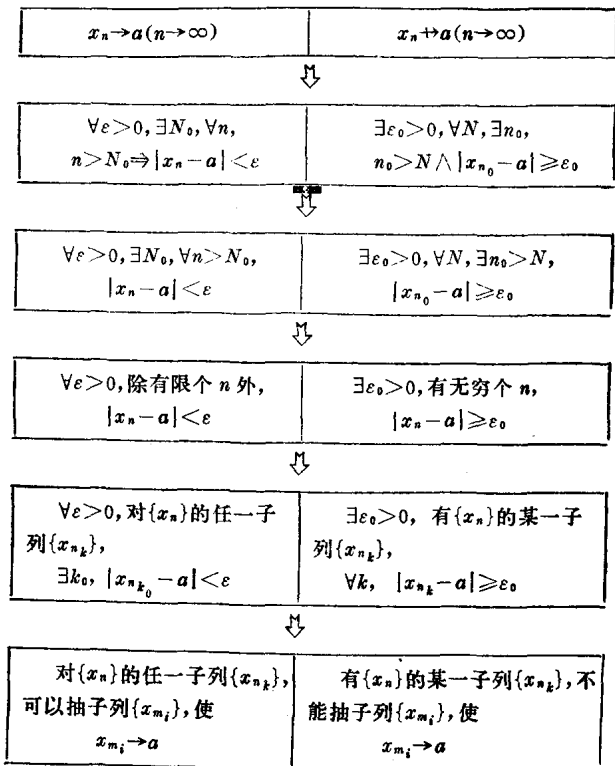 xₙ→a(n→∞)
xₙ↛a(n→∞)
⇩
∀ε>0,∃N₀,∀n,
n>N₀⇒|xₙ-a|<ε
∃ε₀>0,∀N,∃n₀,
n₀>N∧|x_{n₀}-a|≥ε₀
⇩
∀ε>0,∃N₀,∀n>N₀,
|xₙ-a|<ε
∃ε₀>0,∀N,∃n₀>N,
|x_{n₀}-a|≥ε₀
⇩
∀ε>0,除有限个 n 外,
|xₙ-a|<ε
∃ε₀>0,有无穷个 n,
|xₙ-a|≥ε₀
⇩
∀ε>0,对{xₙ}的任一子
列{x_{n_k}},
∃k₀, |x_{n_{k₀}}-a|<ε
∃ε₀>0, 有{xₙ}的某一子
列{x_{n_k}},
∀k, |x_{n_k}-a|≥ε₀
⇩
对{xₙ}的任一子列{x_{n_k}},
可以抽子列{x_{m_i}},使
x_{m_i}→a
有{xₙ}的某一子列{x_{n_k}},不
能抽子列{x_{m_i}},使
x_{m_i}→a